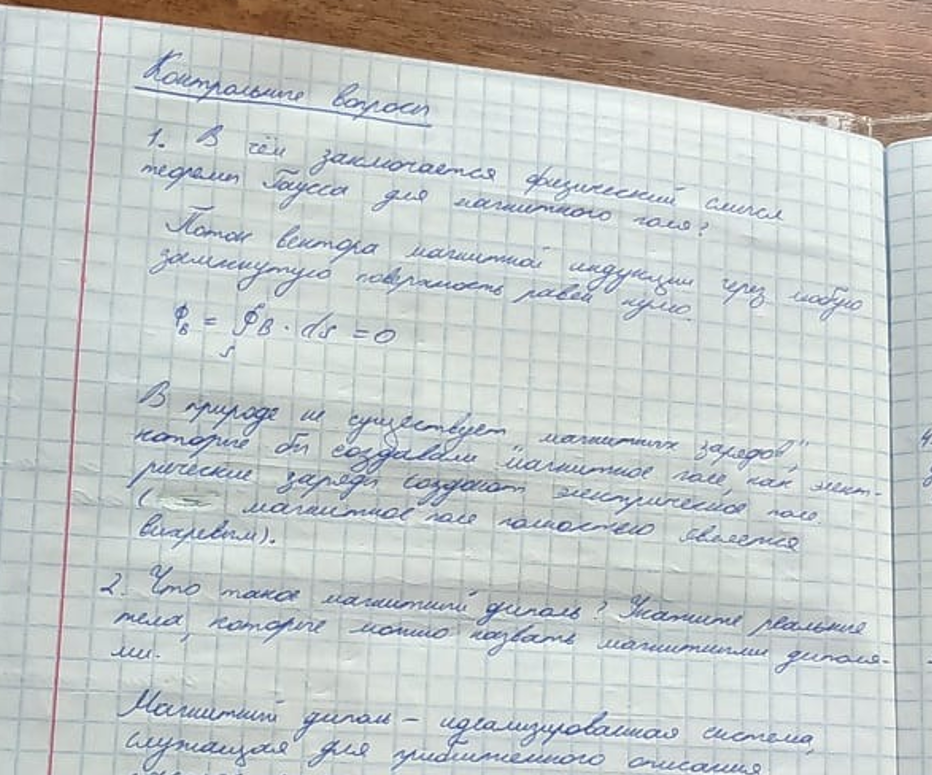 Контрольные вопросы
1. В чём заключается физический смысл
теоремы Гаусса для магнитного поля?
Поток вектора магнитной индукции через любую
замкнутую поверхность равен нулю.
Ф_B = ∮_S B · dS = 0
В природе не существует "магнитных зарядов",
которые бы создавали магнитное поле, как элект-
рические заряды создают электрическое поле.
( магнитное поле полностью является
вихревым).
2. Что такое магнитный диполь? Укажите реальные
тела, которые можно назвать магнитными диполя-
ми.
Магнитный диполь – идеализированная система,
служащая для приближенного описания